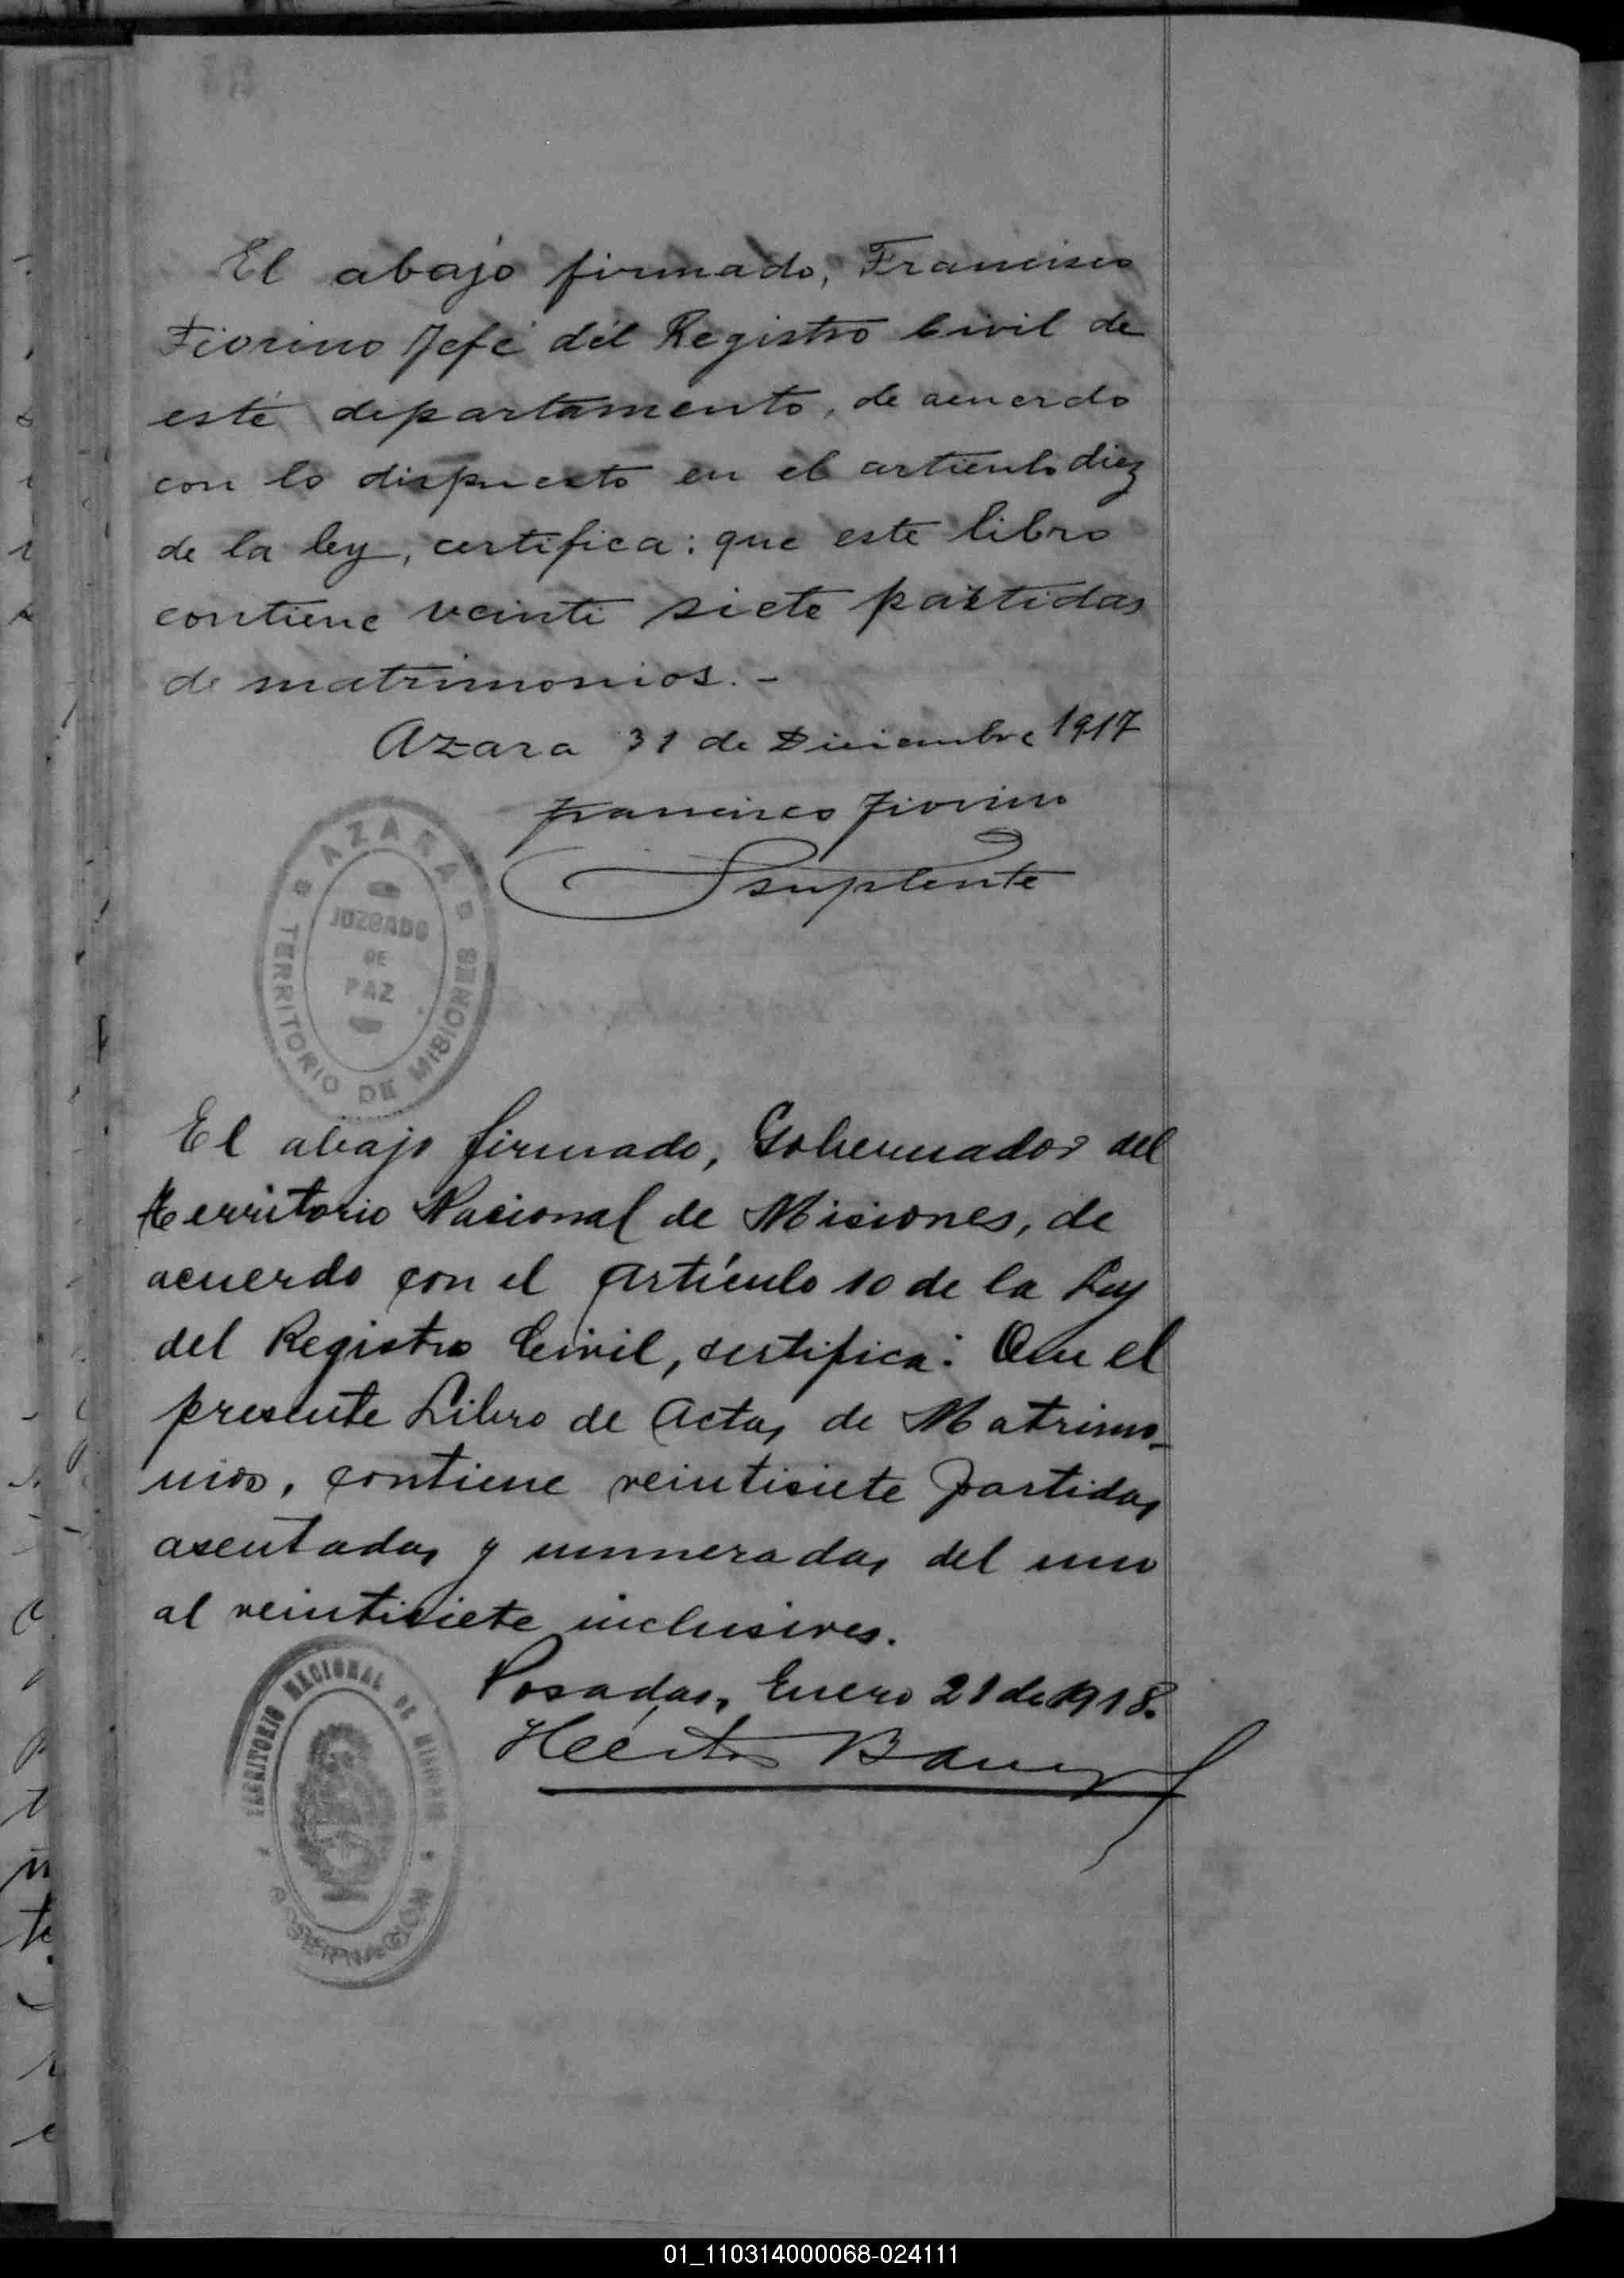 El abajo firmado, Francisco
Fiorino Jefe del Registro Civil de
este departamento, de acuerdo
con lo dispuesto en el articulo diez
de la ley, certifica: que este libro
contiene veinti siete partidas
de matrimonios.-
Azara 31 de Diciembre 1917
Francisco Fiorino
suplente
AZARA
JUZGADO
DE
PAZ
TERRITORIO DE MISIONES
El abajo firmado, Gobernador del
Territorio Nacional de Misiones, de
acuerdo con el artículo 10 de la Ley
del Registro Civil, certifica: Que el
presente Libro de Actas de Matrimo-
nios, contiene veintisiete partidas
asentadas y numeradas del uno
al veintisiete inclusives.
Posadas, Enero 21 de 1918.
Héctor
TERRITORIO NACIONAL DE MISIONES
GOBERNACION
01_110314000068-024111